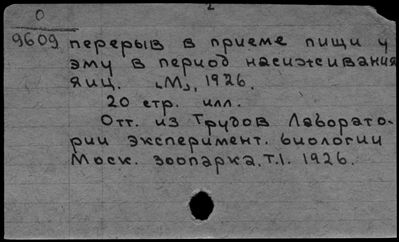 2
О
9609 перерыв в приеме пищи у
эму в период насиживания
яиц. „М", 1926.
20 стр. илл.
Отт. из Трудов Лаборато-
рии эксперимент. биологии
Моск. зоопарка, т.1. 1926.